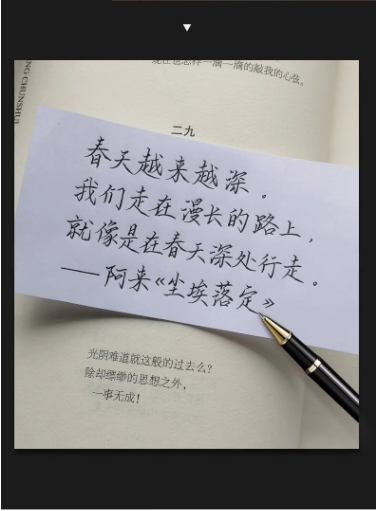 NG CHUNSHUI
现在也怎样一滴一滴的敲我的心弦。
二九
春天越来越深。
我们走在漫长的路上,
就像是在春天深处行走。
——阿来《尘埃落定》
光阴难道就这般的过去么?
除却缥缈的思想之外,
一事无成!